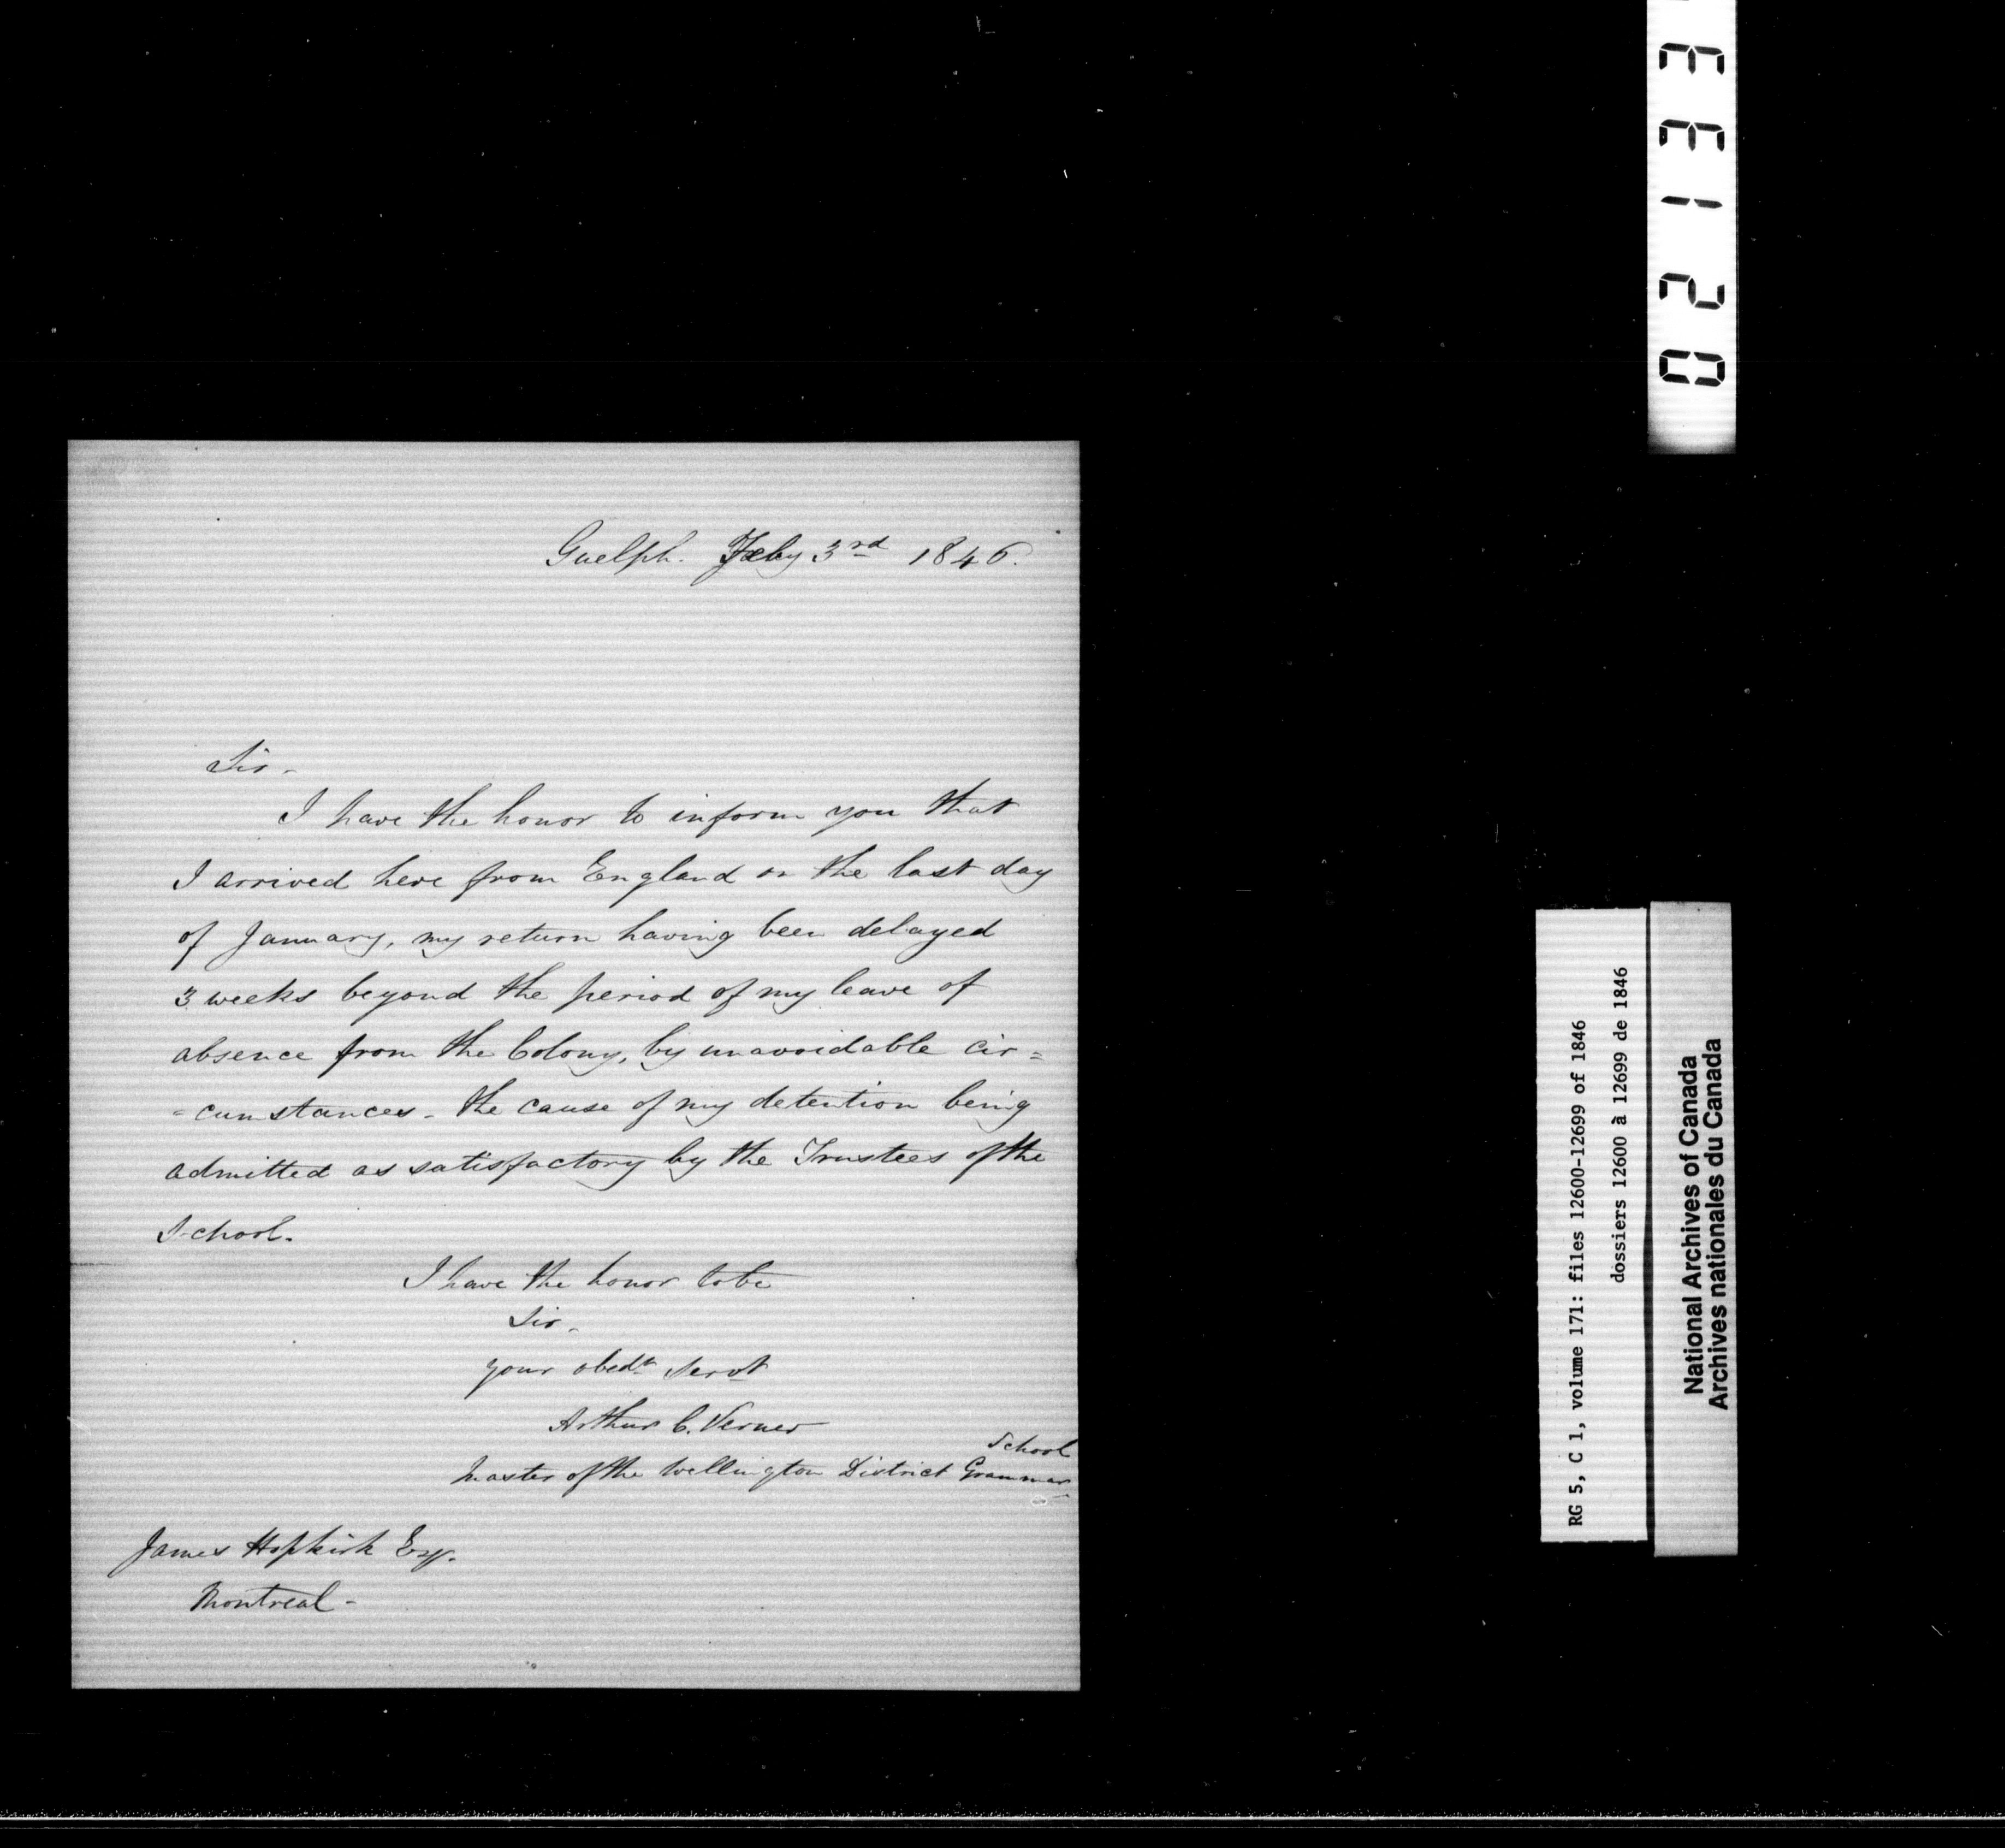 Guelph. Feby 3rd 1846.
Sir-
I have the honor to inform you that
I arrived here from England on the last day
of January, my return having been delayed
3 weeks beyond the period of my leave of
absence from the Colony, by unavoidable cir=
=cumstances- the cause of my detention being
admitted as satisfactory by the Trustees of the
School.
I have the honor to be
Sir-
your obedt servt
Arthur C. Verner
Master of the Wellington District Grammar
School
James Hopkirk Esqr.
Montreal-
02133
RG 5, C 1, volume 171: files 12600-12699 of 1846
dossiers 12600 à 12699 de 1846
National Archives of Canada
Archives nationales du Canada